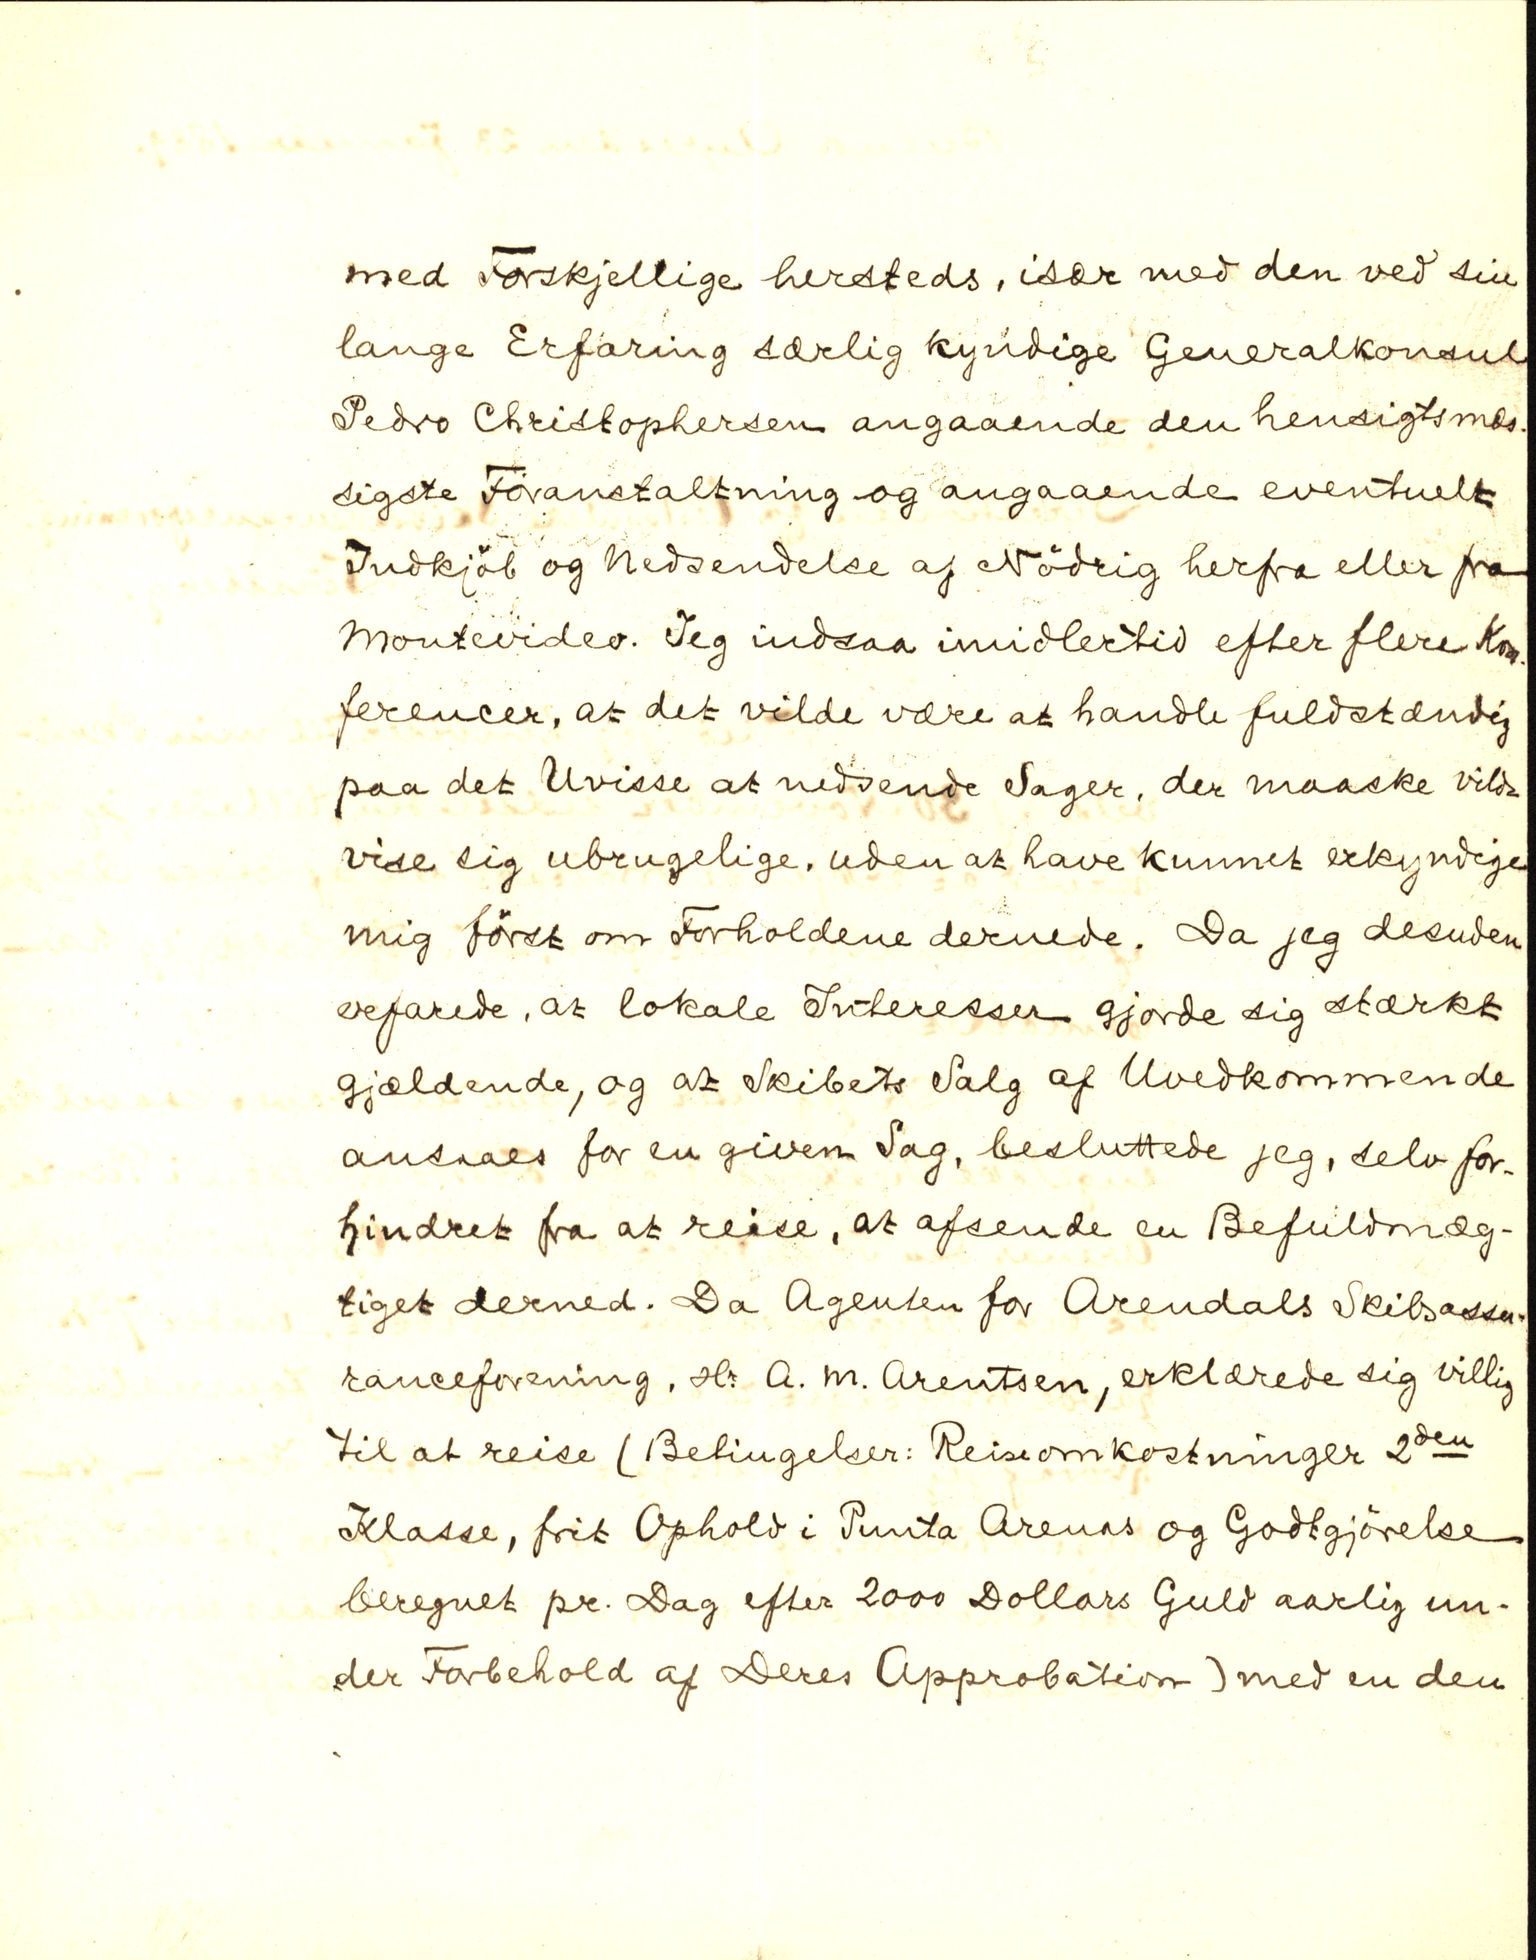 med Forskjellige hersteds, især med den ved sin
lange Erfaring særlig kyndige Generalkonsul
Pedro Christophersen angaaende den hensigtsmæs-
sigste Foranstaltning og angaaende eventuelt
Indkjöb og Nedsendelse af Nödrig herfra eller fra
Montevideo. Jeg indsaa imidlertid efter flere Kon-
ferencer, at det vilde være at handle fuldstændig
paa det Uvisse at nedsende Sager, der maaske vilde
vise sig ubrugelige, uden at have kunnet erkyndige
mig först om Forholdene dernede. Da jeg desuden
erfarede, at lokale Interesser gjorde sig stærkt
gjældende, og at Skibets Salg af Uvedkommende
ansaaes for en given Sag, besluttede jeg, selv for-
hindret fra at reise, at afsende en Befuldmæg-
tiget derned. Da Agenten for Arendals Skibsassu-
ranceforening, Hr. A. M. Arentsen, erklærede sig villig
til at reise (Betingelser: Reiseomkostninger 2den
Klasse, frit Ophold i Punta Arenas og Godtgjörelse
beregnet pr. Dag efter 2000 Dollars Guld aarlig un-
der Forbehold af Deres Approbation) med en den